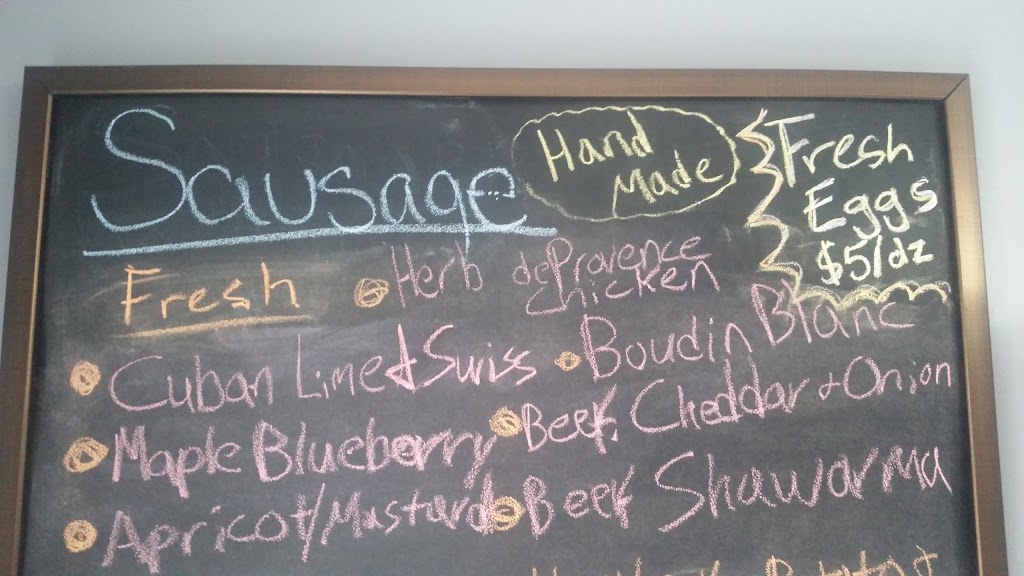 Sausage
Hand
Made
Fresh
Eggs
$5/dz
Fresh
Herb de Provence
chicken
Cuban Lime & Swiss
Boudin Blanc
Maple Blueberry
Beef, Cheddar & Onion
Apricot/Mustard
Beef Shawarma